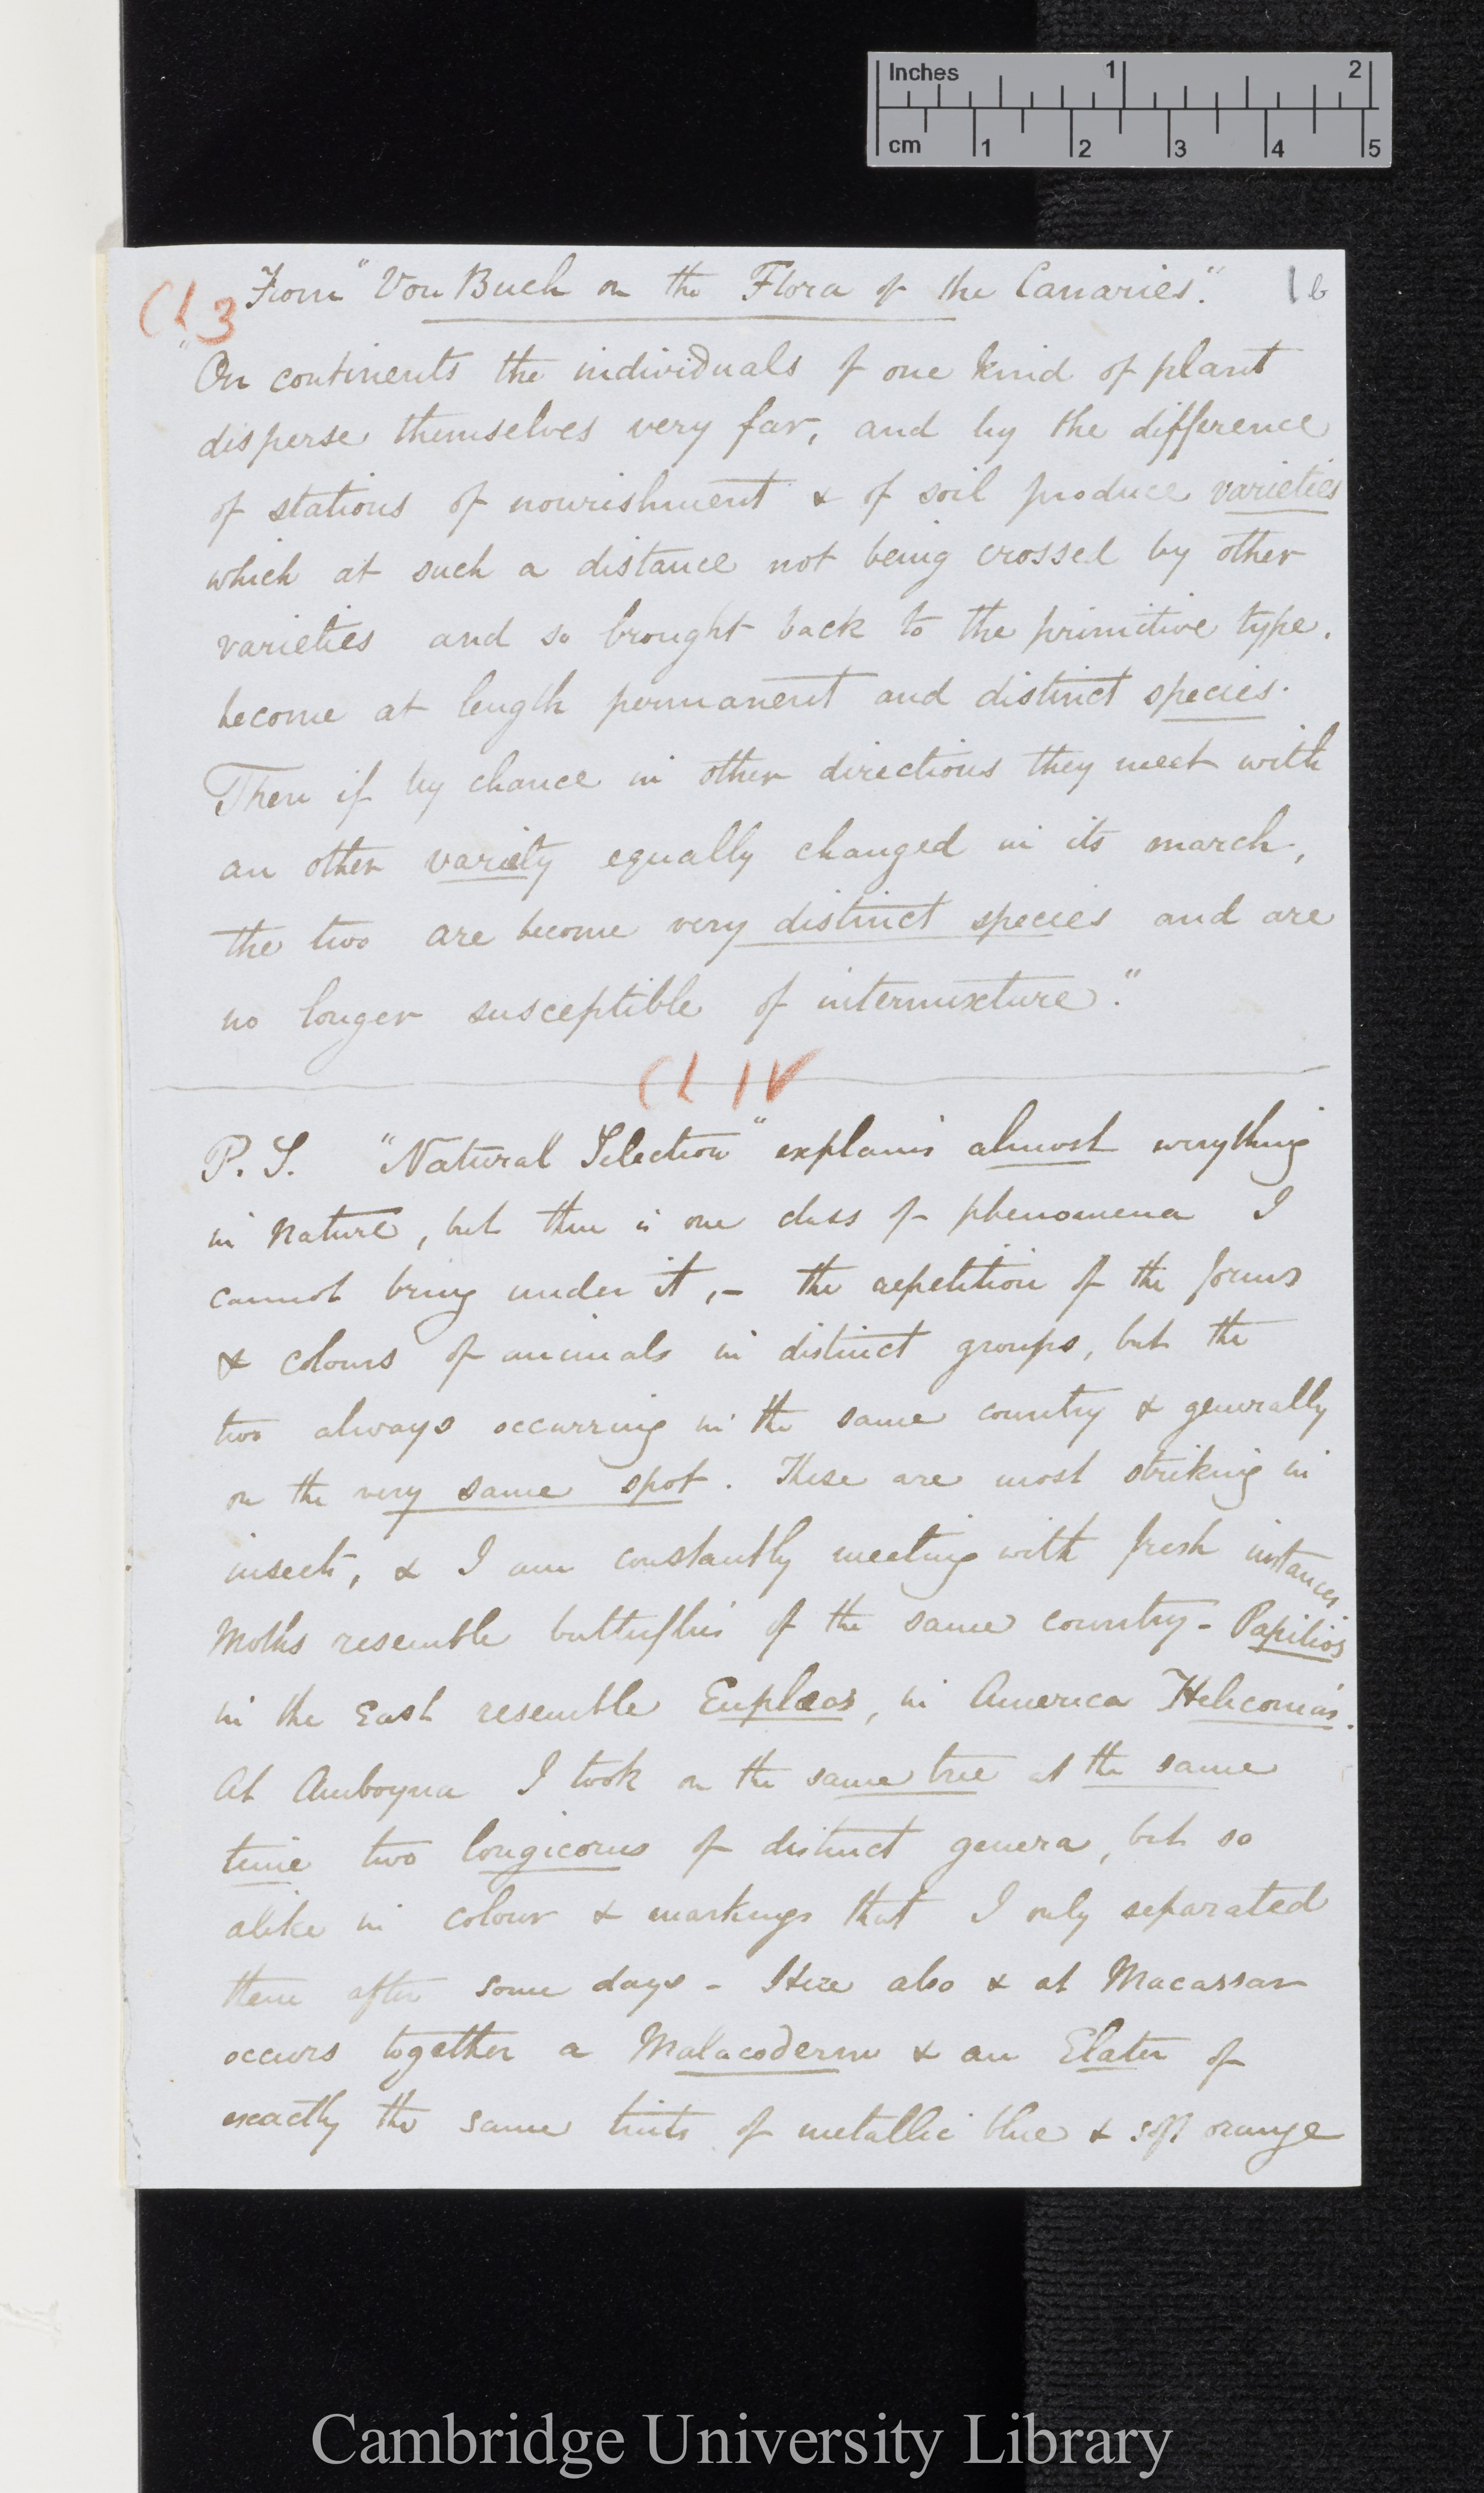 Inches 1 2
cm 1 2 3 4 5
Ch 3
From "Von Buch on the Flora of the Canaries". 1 b
"On continents the individuals of one kind of plant
disperse themselves very far, and by the difference
of stations of nourishment & of soil produce varieties
which at such a distance not being crossed by other
varieties and so brought back to the primitive type,
become at length permanent and distinct species.
Then if by chance in other directions they meet with
an other variety equally changed in its march,
the two are become very distinct species and are
no longer susceptible of intermixture."
Ch IV
P.S. "Natural Selection" explains almost everything
in Nature, but there is one class of phenomena I
cannot bring under it,– the repetition of the forms
& colours of animals in distinct groups, but the
two always occurring in the same country & generally
on the very same spot. These are most striking in
insects, & I am constantly meeting with fresh instances.
Moths resemble butterflies of the same country – Papilios
in the East resemble Euplæas, in America Heliconias.
At Amboyna I took on the same tree at the same
time two longicorns of distinct genera, but so
alike in colour & markings that I only separated
them after some days – Here also & at Macassar
occurs together a Malacoderm & an Elater of
exactly the same tints of metallic blue & soft orange
Cambridge University Library